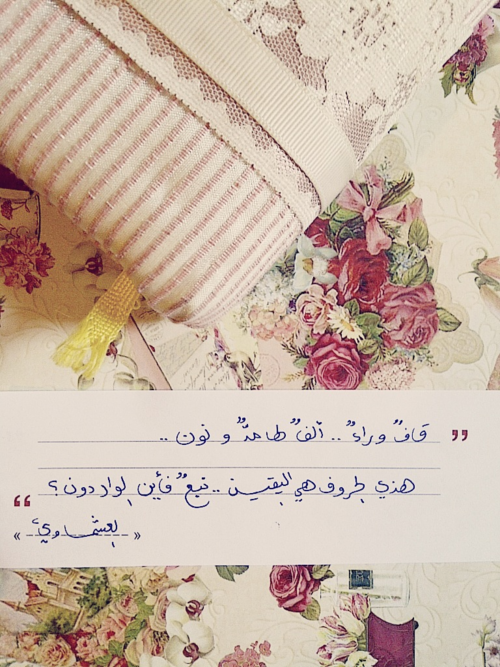 قافٌ وراءٌ .. ألفٌ لها مدٌّ و نون ..
هذي الحروف هي اليقين .. نبعٌ فأين الواردون ؟
« العشماوي »